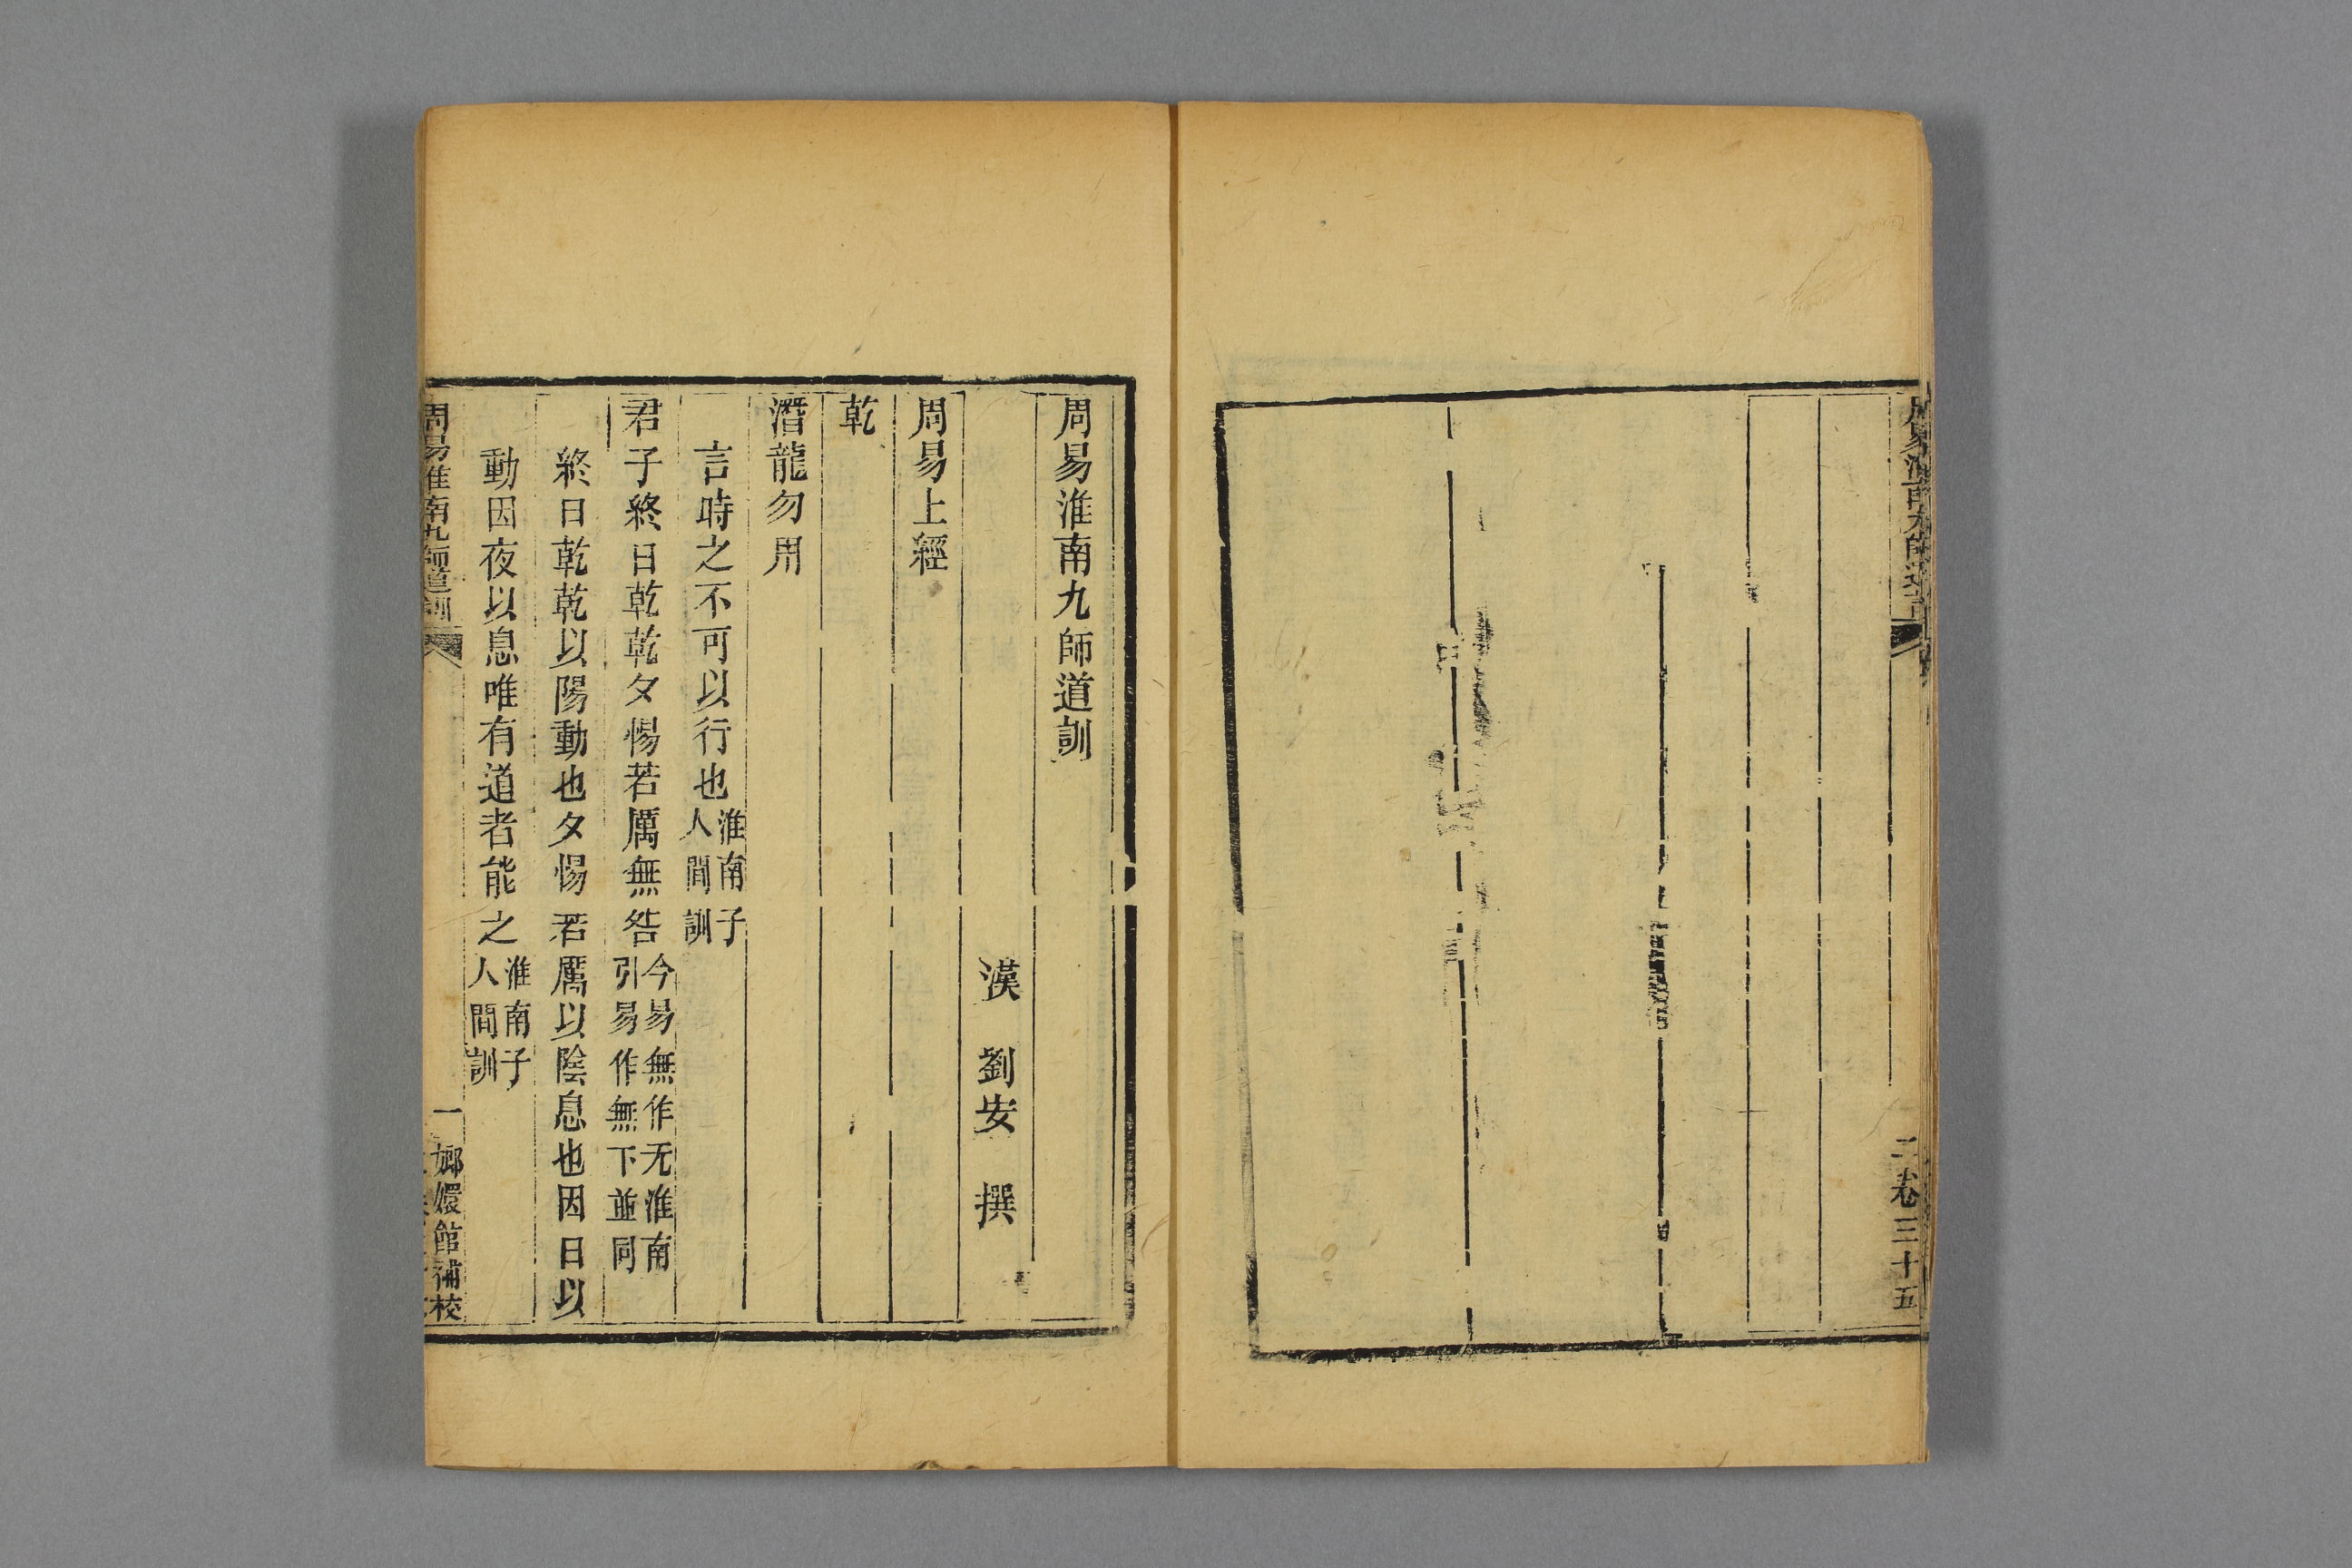 二 卷三十五
周易淮南九師道訓
漢 劉安 撰
周易上經
乾
潛龍勿用
言時之不可以行也淮南子人間訓
君子終日乾乾夕惕若厲無咎今易無作无淮南引易作無下並同
終日乾乾以陽動也夕惕若厲以陰息也因日以
動因夜以息唯有道者能之淮南子人間訓
周易淮南九師道訓 一 嫏嬛館補校